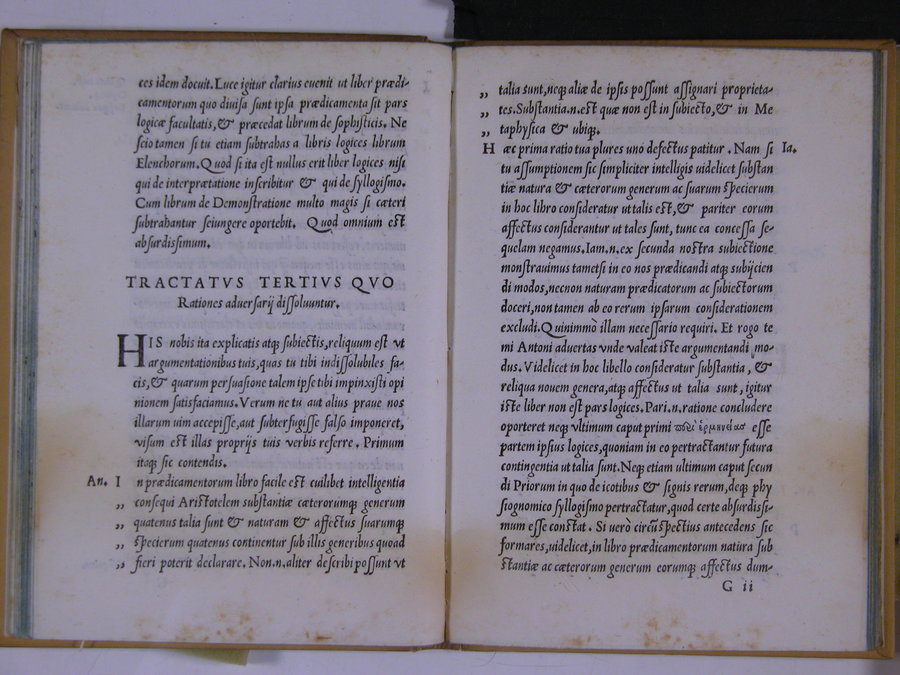 ces idem docuit. Luce igitur clarius euenit ut liber prædi-
camentorum quo diuisa sunt ipsa prædicamenta sit pars
logicæ facultatis, & præcedat librum de sophisticis. Ne
scio tamen si tu etiam subtrahas a libris logices librum
Elenchorum. Quod si ita est nullus erit liber logices nisi
qui de interprætatione inscribitur & qui de syllogismo.
Cum librum de Demonstratione multo magis si cæteri
subtrahantur seiungere oportebit. Quod omnium est
absurdissimum.
TRACTATVS TERTIVS QVO
Rationes aduersarij dissoluuntur.
HIS nobis ita explicatis atq; subiectis, reliquum est ut
argumentationibus tuis, quas tu tibi indissolubiles fa-
cis, & quarum persuasione talem ipse tibi impinxisti opi
nionem satisfaciamus. Verum ne tu aut alius praue nos
illarum uim accepisse, aut subterfugisse falso imponeret,
visum est illas proprijs tuis verbis referre. Primum
itaq; sic contendis.
An. I n prædicamentorum libro facile est cuilibet intelligentia
„ consequi Aristotelem substantiæ cæterorumq; generum
„ quatenus talia sunt & naturam & affectus suarumq;
„ specierum quatenus continentur sub illis generibus quoad
„ fieri poterit declarare. Non.n. aliter describi possunt ut
„ talia sunt, neq; aliæ de ipsis possunt assignari proprieta-
„ tes. Substantia.n. est quæ non est in subiecto, & in Me
„ taphysica & ubiq;.
H æc prima ratio tua plures uno defectus patitur. Nam si Ia.
tu assumptionem sic simpliciter intelligis uidelicet substan
tiæ natura & cæterorum generum ac suarum specierum
in hoc libro consideratur ut talis est, & pariter eorum
affectus considerantur ut tales sunt, tunc ea concessa se-
quelam negamus. Iam.n. ex secunda nostra subiectione
monstrauimus tametsi in eo nos prædicandi atq; subijcien
di modos, necnon naturam prædicatorum ac subiectorum
doceri, non tamen ab eo rerum ipsarum considerationem
excludi. Quinimmò illam necessario requiri. Et rogo te
mi Antoni aduertas vnde valeat iste argumentandi mo-
dus. Videlicet in hoc libello consideratur substantia, &
reliqua nouem genera, atq; affectus ut talia sunt, igitur
iste liber non est pars logices. Pari.n. ratione concludere
oporteret neq; vltimum caput primi ἑρμηνείας esse
partem ipsius logices, quoniam in eo pertractantur futura
contingentia ut talia sunt. Neq; etiam ultimum caput secun
di Priorum in quo de icotibus & signis rerum, deq; phy
siognomico syllogismo pertractatur, quod certe absurdissi-
mum esse constat. Si uerò circũspectius antecedens sic
formares, uidelicet, in libro prædicamentorum natura sub
stantiæ ac cæterorum generum eorumq; affectus dum-
G ii